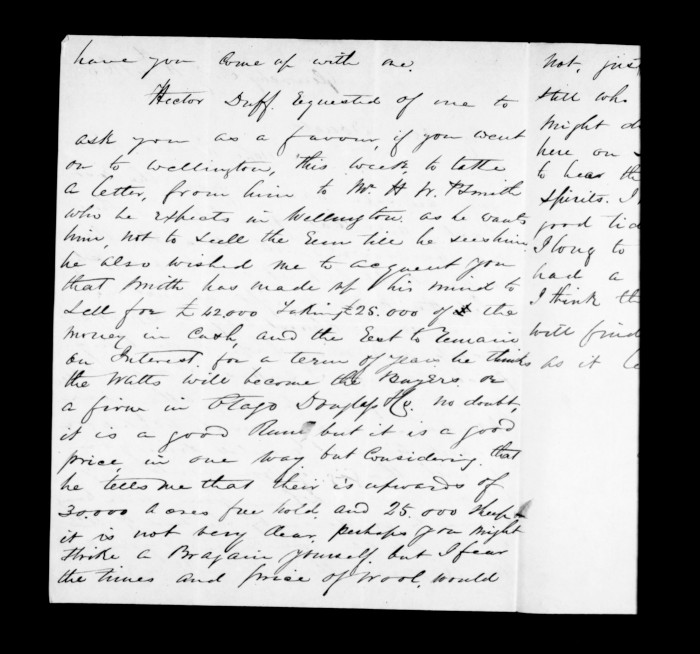 have you Come up with me.
Hector Duff. Requested of me to
ask you as a favour, if you went
on to Wellington, this week, to take
a letter, from him to Mr H W Smith
who he expects in Wellington. as he wants
him, not to Sell the Run till he sees him
he also wished me to acquent you
that Smith has made up his mind to
Sell for £ 42,000 Taking £25.000 of the
money in Cash, and the Rest to Remain
on Interest for a term of years he thinks
the Watts will become the Buyers. or
a firm in Otago Douglass &Co. no doubt,
it is a good Run but it is a good
price, in one way but Considering. that
he tells me that their is upwards of
30.000 acres free hold. and 25.000 sheep
it is not very dear. perhaps you might
Strike a Bragain yourself. but I fear
the times and price of wool, would
not, just
still who
might
here on
to hear th
spirits. I
good tid
I long to
had a
I think th
will find
as it